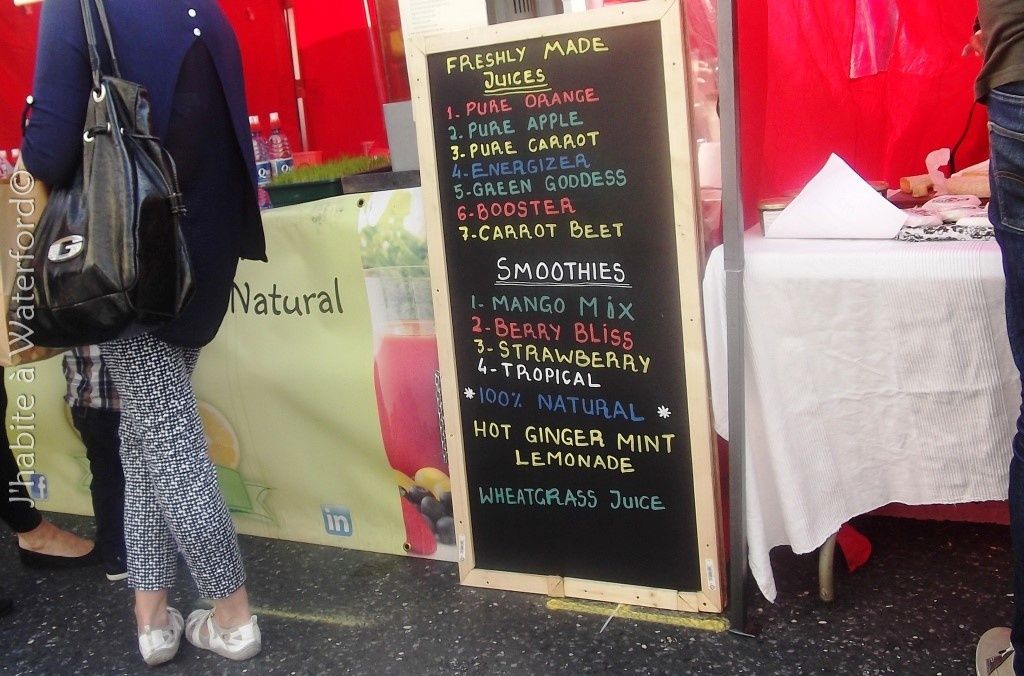 FRESHLY MADE
JUICES
1. PURE ORANGE
2. PURE APPLE
3. PURE CARROT
4-ENERGIZER
5-GREEN GODDESS
6-BOOSTER
7-CARROT BEET
SMOOTHIES
1- MANGO MiX
2-BERRY BLiSS
3-STRAWBERRY
4-TROPICAL
*100% NATURAL *
HOT GINGER MINT
LEMONADE
WHEATGRASS JUICE
Natural
in
f
G
J'habite à Waterford©